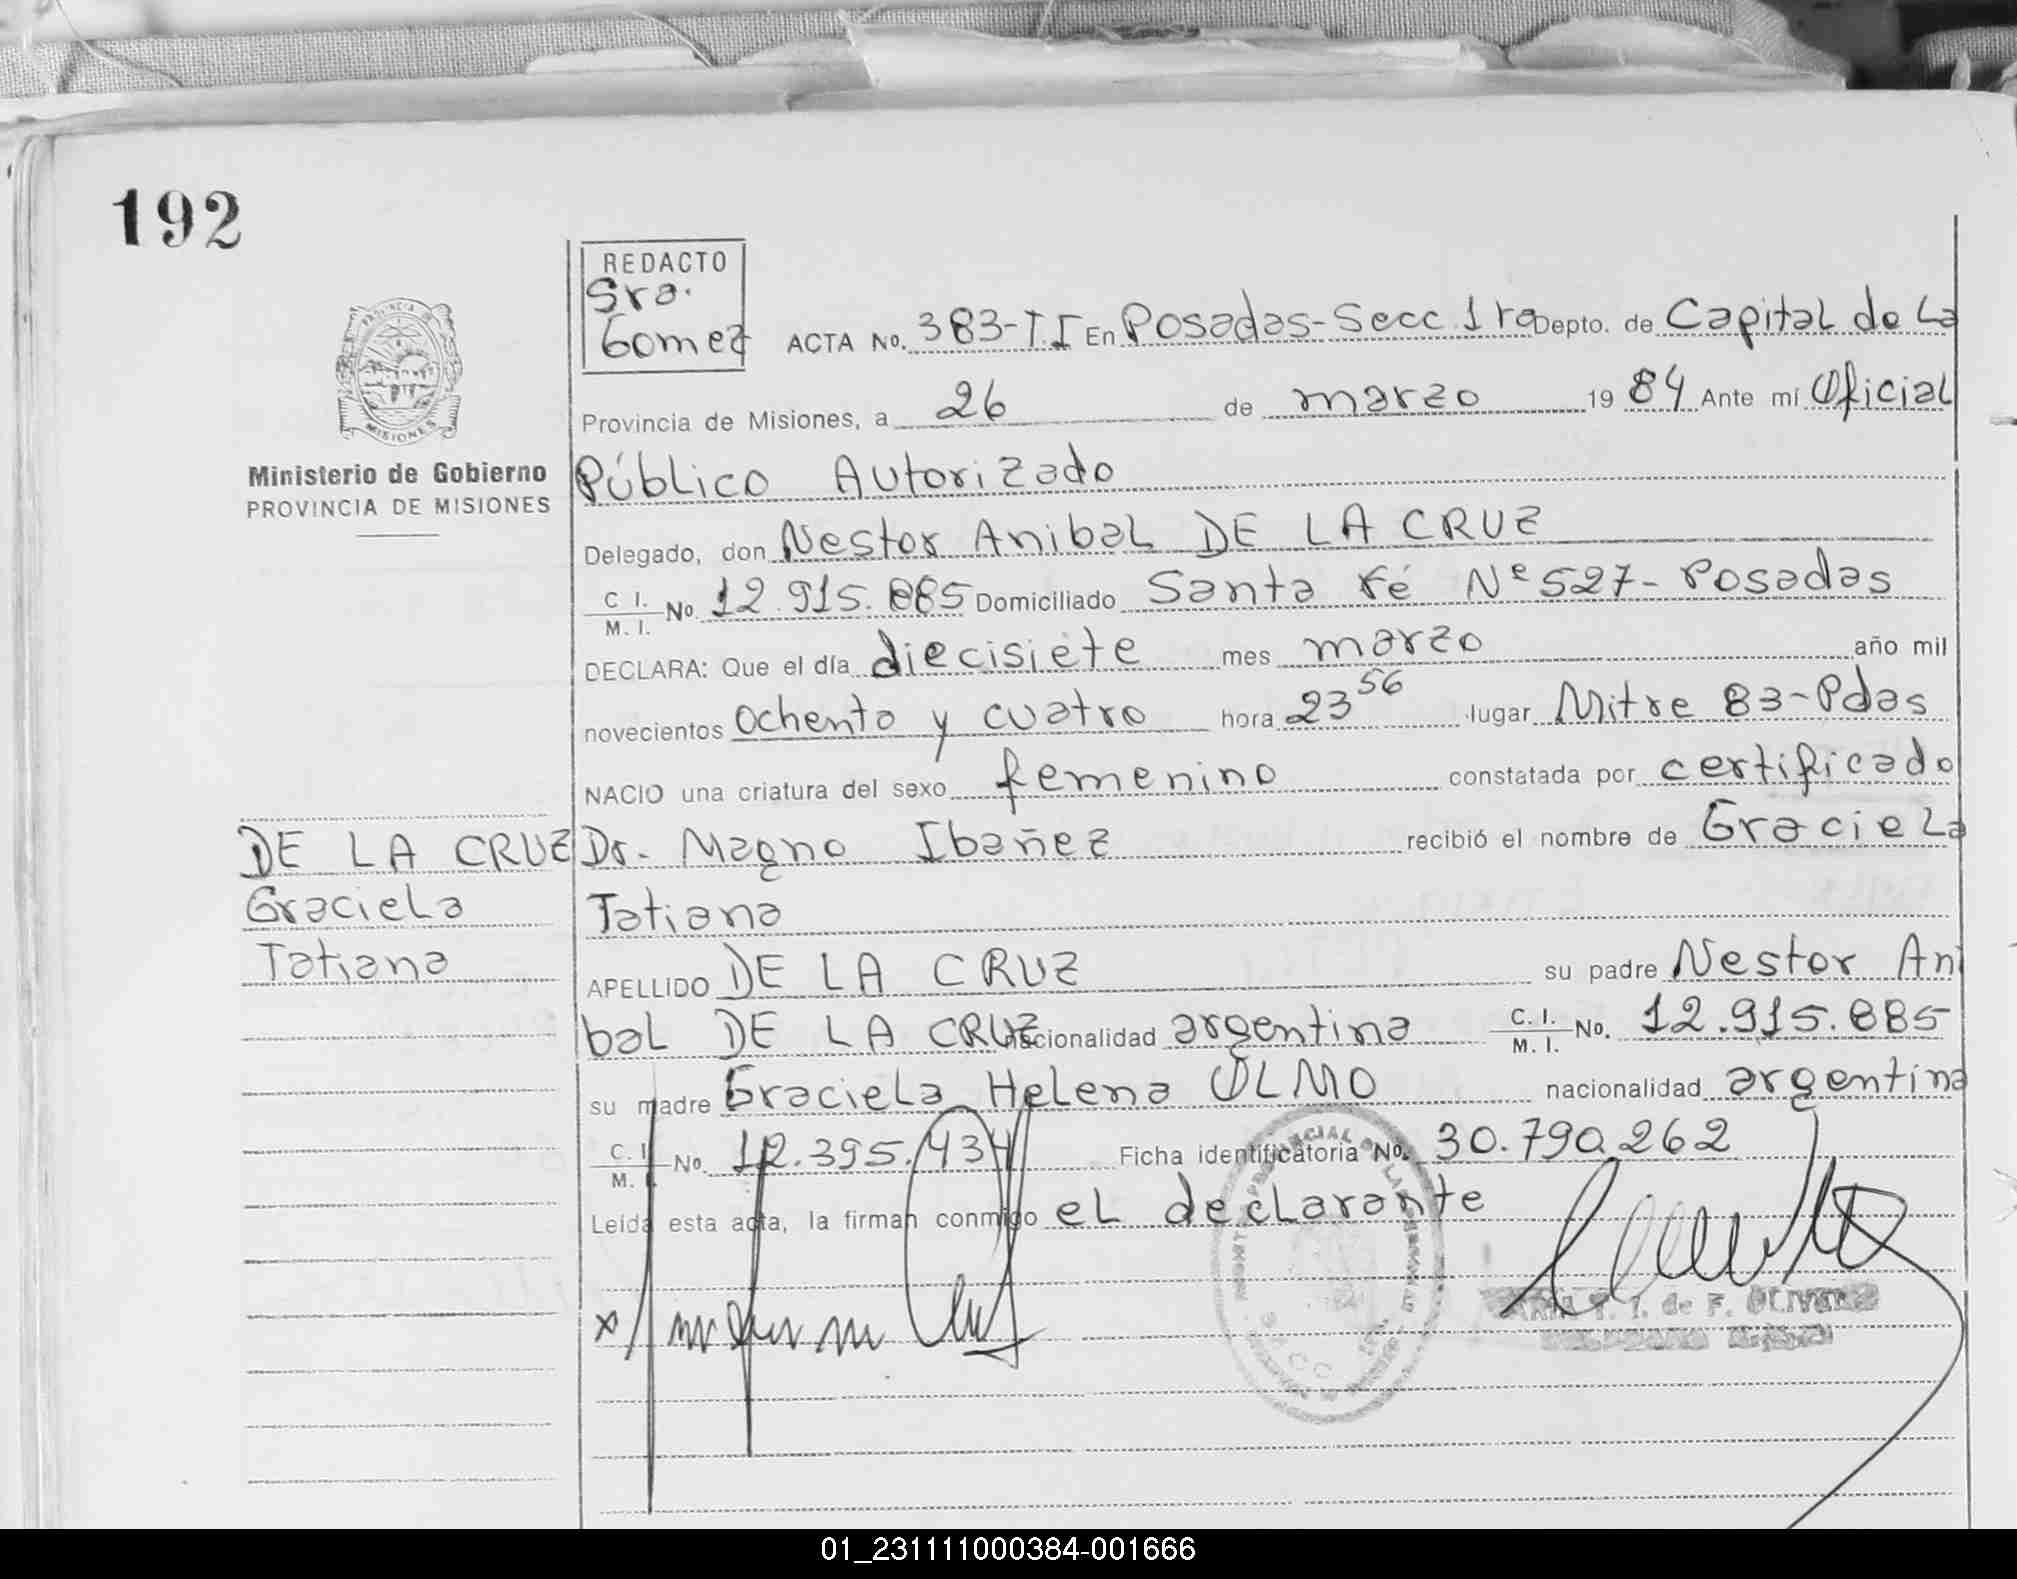 192
REDACTO
Sra.
Gomez
ACTA No. 383-T.I En Posadas-Secc.1ra Depto. de Capital de La
Provincia de Misiones, a 26 de marzo 1984 Ante mí Oficial
MISIONES
Ministerio de Gobierno
PROVINCIA DE MISIONES
Público Autorizado
Delegado, don Nestor Anibal DE LA CRUZ
C. I. M. I. No. 12.915.885 Domiciliado Santa Fé Nº 527- Posadas
DECLARA: Que el día diecisiete mes marzo año mil
novecientos ochenta y cuatro hora 23 56 lugar Mitre 83-Pdas
NACIO una criatura del sexo femenino constatada por certificado
DE LA CRUZ
Graciela
Tatiana
Dr. Magno Ibañez recibió el nombre de Graciela
Tatiana
APELLIDO DE LA CRUZ su padre Nestor Ani
bal DE LA CRUZ nacionalidad argentina C. I. M. I. No. 12.915.885
su madre Graciela Helena OLMO nacionalidad argentina
C. I. M. I. No. 12.395.434 Ficha identificatoria No. 30.790.262
Leída esta acta, la firman conmigo el declarante
de F. OLIVERA
01_231111000384-001666